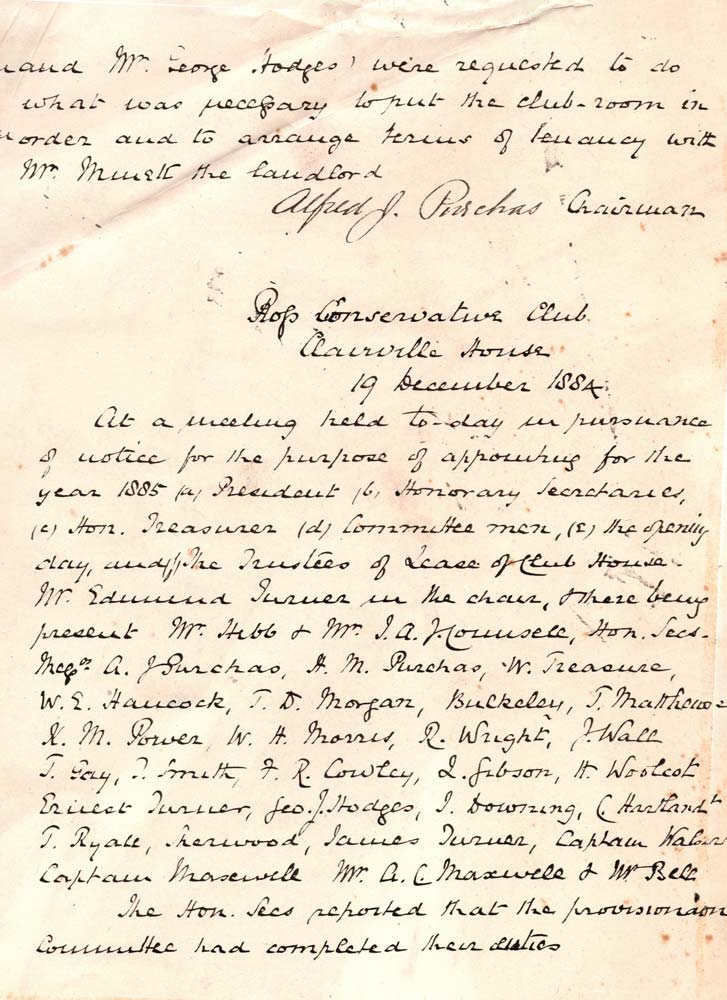 and Mr. George Hodges were requested to do
what was necessary to put the club-room in
order and to arrange terms of tenancy with
Mr. Minett the landlord
Alfred J. Purchas Chairman
Ross Conservative Club
Clairville House
19 December 1884
At a meeting held to-day in pursuance
of notice for the purpose of appointing for the
year 1885 (a) President (b) Honorary Secretaries,
(c) Hon. Treasurer (d) Committee men, (e) the opening
day, and (f) the Trustees of Lease of Club House.
Mr. Edmund Turner in the chair, & there being
present Mr. Hibb & Mr. J. A. Counsell, Hon. Secs.
A. J Purchas, H. M. Purchas, W. Treasure,
W. E. Hancock, T. D. Morgan, Bulkeley, T. Matthews
K. M. Power, W. H. Morris, R. Wright, J. Wall
T. Gay, T. Smith, F. R. Cowley, L. Gibson, H. Woolcot
Ernest Turner, Geo. J. Hodges, J. Downing, C Hartland
T. Ryall, Sherwood, James Turner, Captain
Captain Maxwell Mr. A. C Maxwell & Mr Bell
The Hon. Secs reported that the provision
Committee had completed their duties